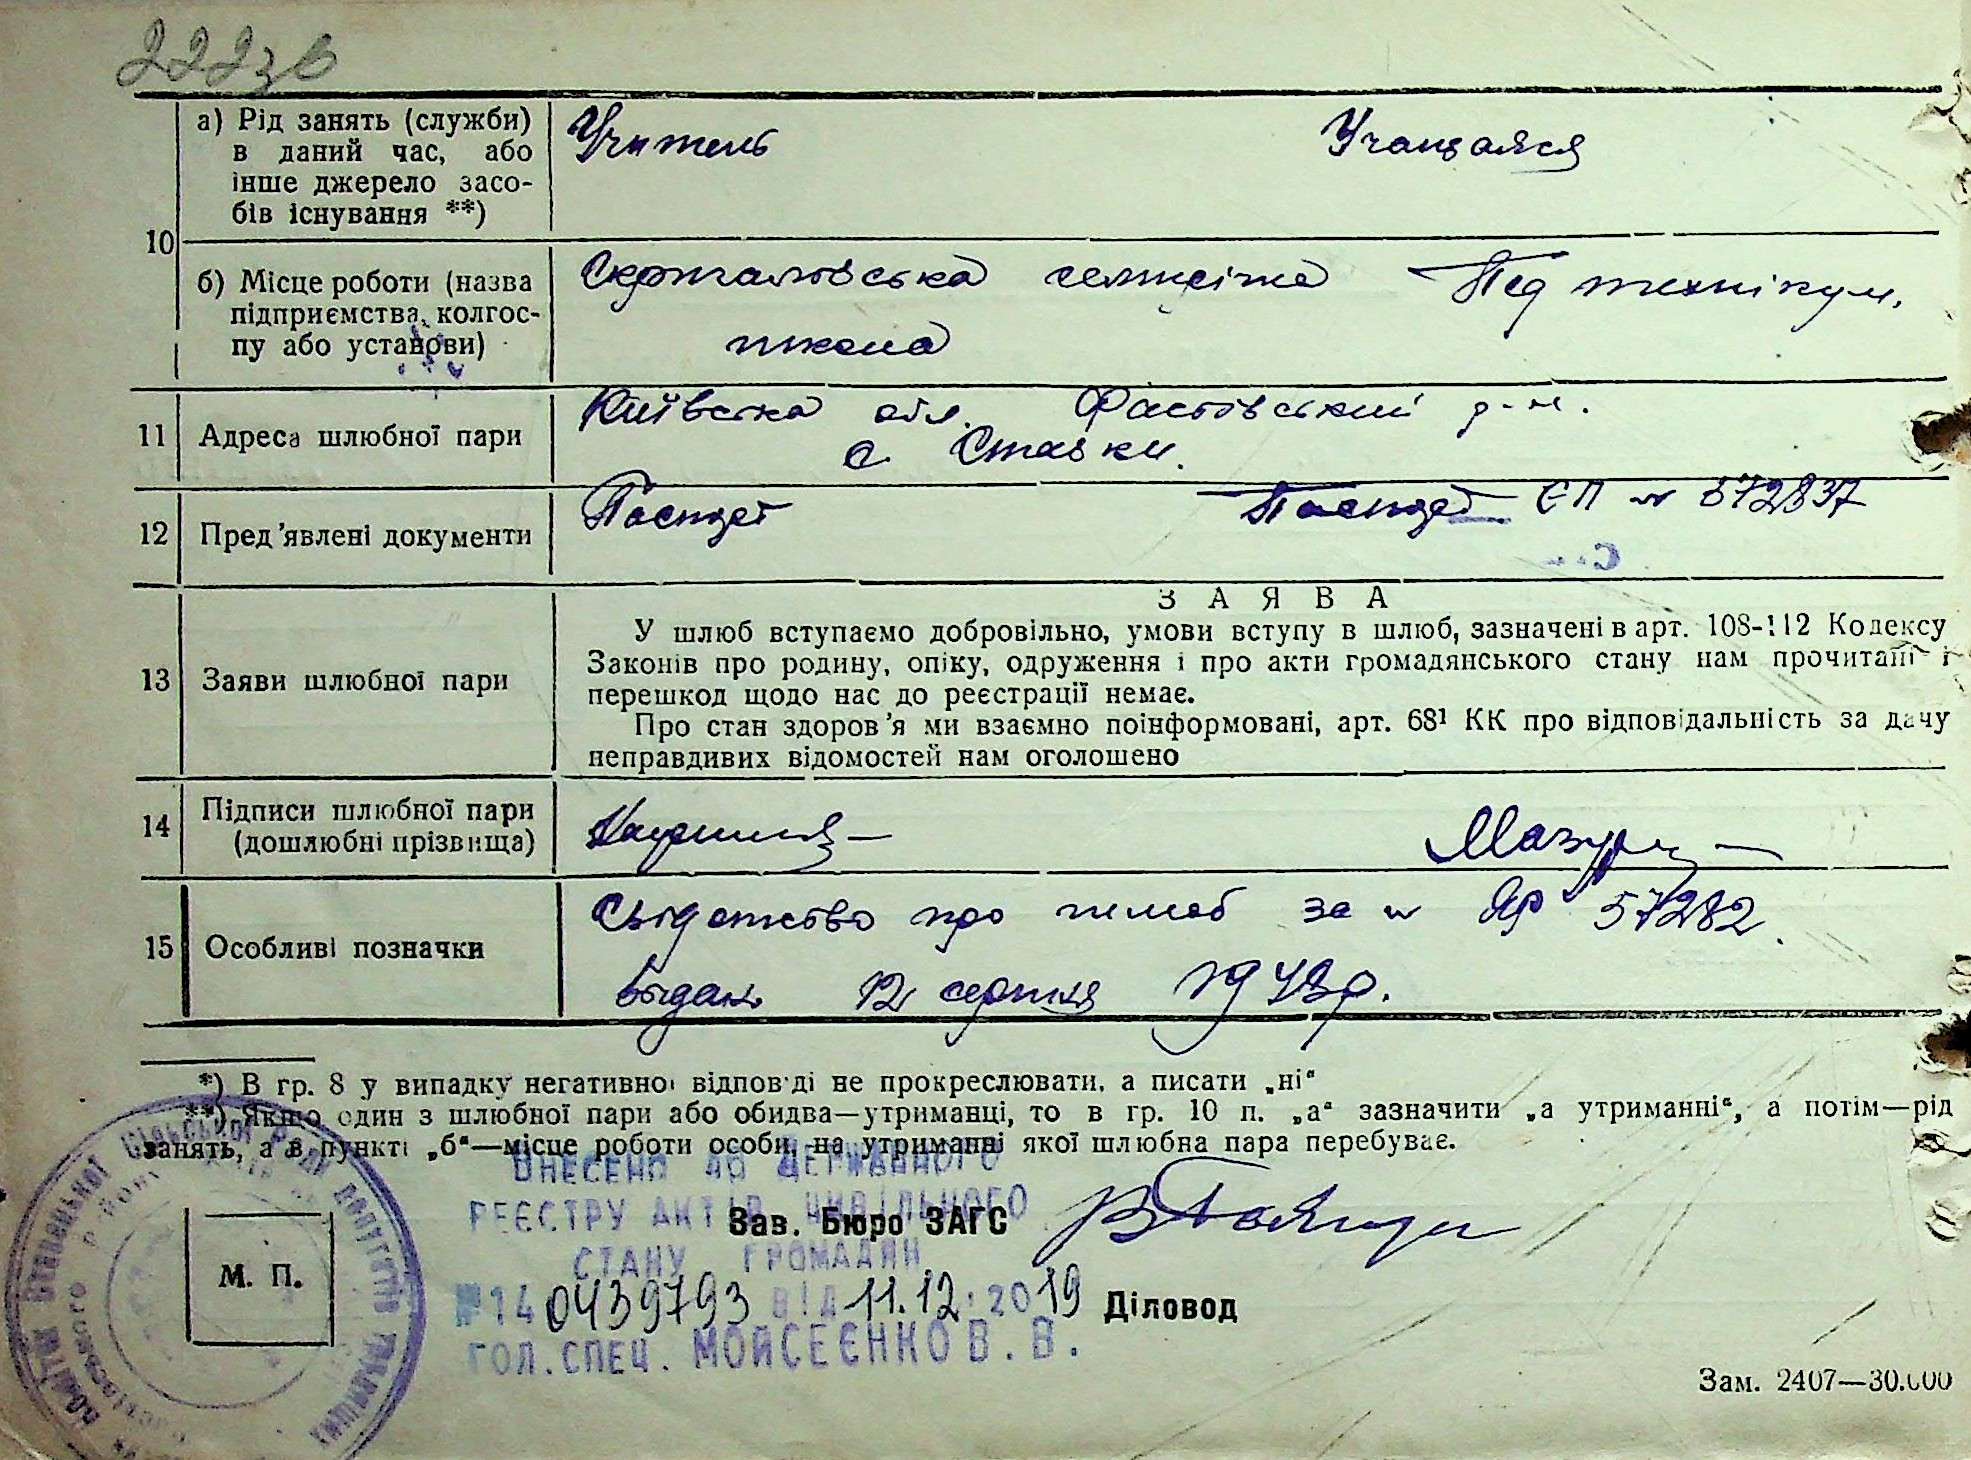 222зв
10
а) Рід занять (служби)
в даний час, або
інше джерело засо-
бів існування **)
Учитель
Учащаяся
б) Місце роботи (назва
підприємства, колгос-
пу або установи)
семирічна
школа
Пед технікум.
11
Адреса шлюбної пари
Київська обл. Фастівський р-н.
с. Ставки.
12
Пред'явлені документи
Паспорт
Паспорт ЄП № 572837
13
Заяви шлюбної пари
ЗАЯВА
У шлюб вступаємо добровільно, умови вступу в шлюб, зазначені в арт. 108-112 Кодексу
Законів про родину, опіку, одруження і про акти громадянського стану нам прочитані і
перешкод щодо нас до реєстрації немає.
Про стан здоров'я ми взаємно поінформовані, арт. 68¹ КК про відповідальність за дачу
неправдивих відомостей нам оголошено
14
Підписи шлюбної пари
(дошлюбні прізвища)
15
Особливі позначки
Свідотство про шлюб за № ЯР 57282.
12 серпня 1948р.
*) В гр. 8 у випадку негативної відповіді не прокреслювати, а писати „ні"
**) Якщо один з шлюбної пари або обидва—утриманці, то в гр. 10 п. „а" зазначити „а утриманні", а потім—рід
занять, а в пункті „б"—місце роботи особи, на утриманні якої шлюбна пара перебуває.
ВНЕСЕНО ДО ДЕРЖАВНОГО
РЕЄСТРУ АКТІВ ЦИВІЛЬНОГО
Зав. Бюро ЗАГС
СТАНУ ГРОМАДЯН
М. П.
№ 140439793 ВІД 11.12.2019
Діловод
ГОЛ. СПЕЦ. МОЙСЕЄНКО В. В.
Зам. 2407—30.000